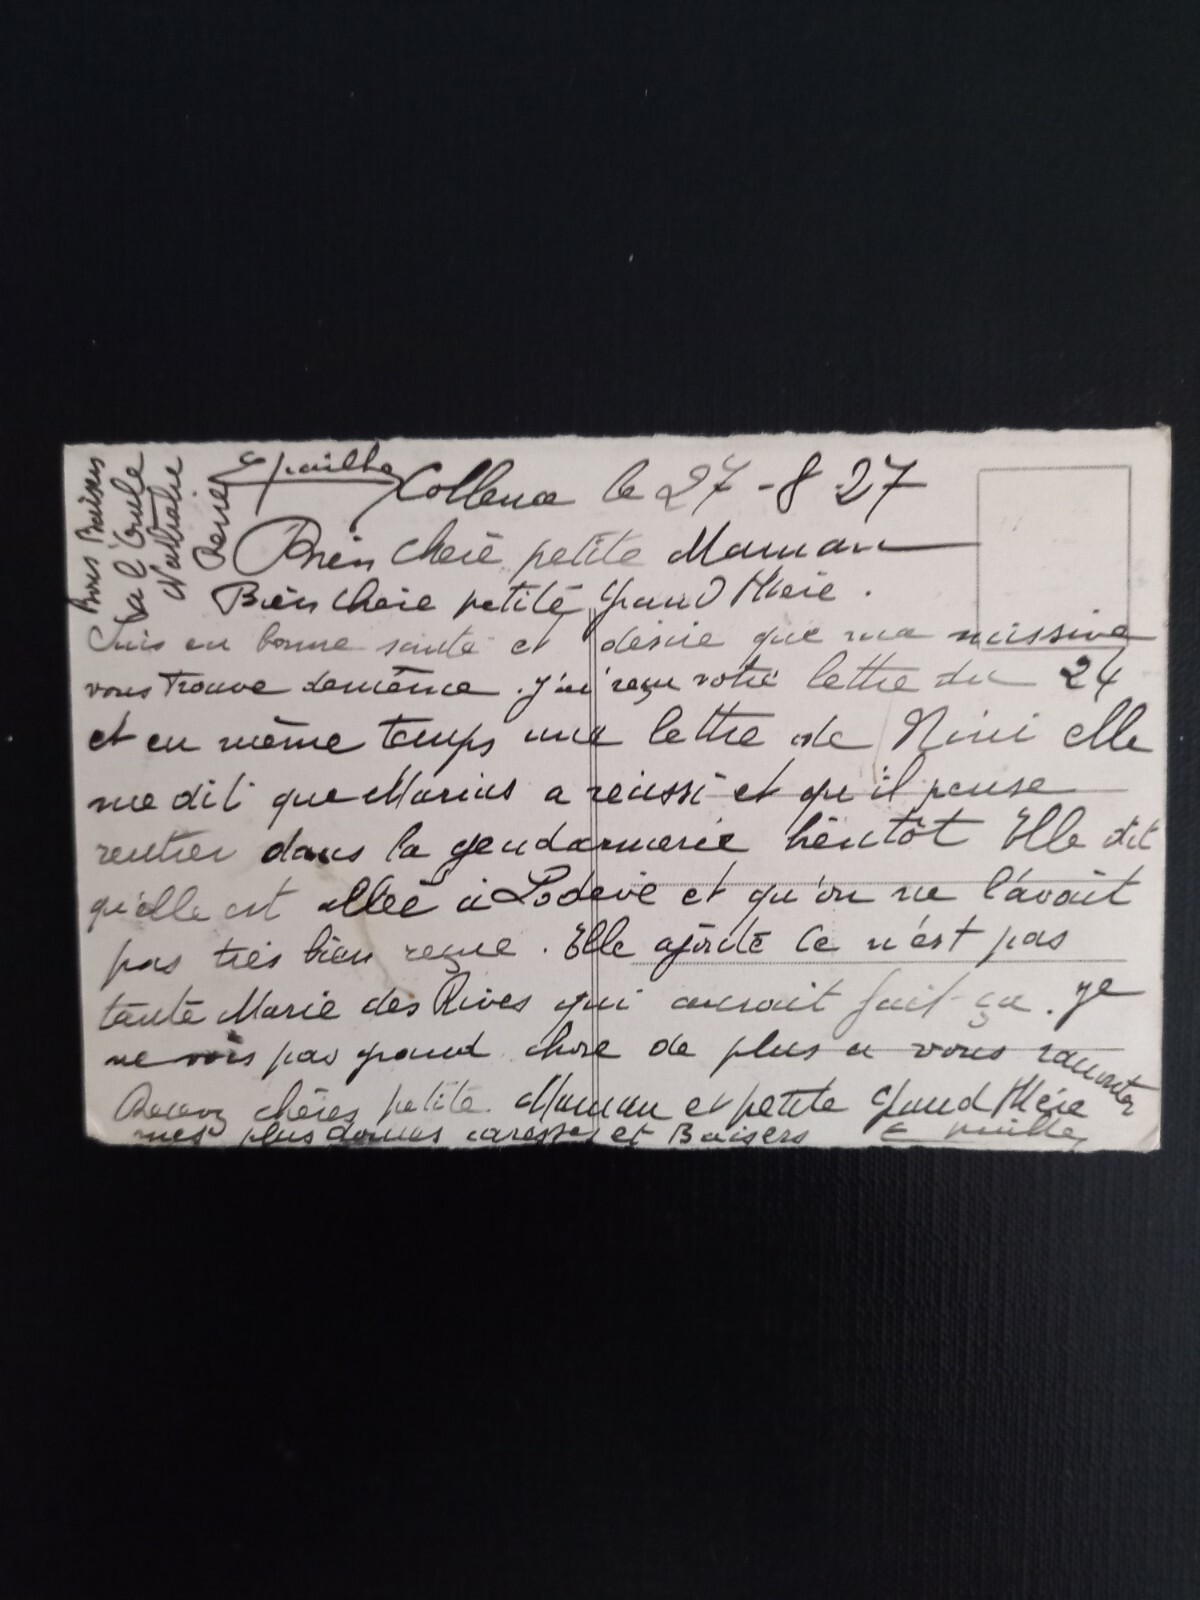 Bons Baisers
à l'Oncle
Nathalie
Collena le 27-8 27
Bien cheié petite Maman
Bien cheie petité Grand Mère.
Suis en bonne santé et désire que ma missive
vous trouve demême. J'ai reçu votre lettre du 24
et en même temps une lettre de Nini elle
me dit que Marius a réussi et qu'il pense
rentrer dans la gendarmerie bientôt Elle dit
qu'elle est allée à Lodève et qu'on ne l'avait
pas très bien reçue. Elle ajoute ce n'est pas
tante Marie des Rives qui aurait fait ça. Je
ne vois pas grand chose de plus a vous raconter
Recevez chères petite Maman et petite Grand Mère
mes plus douces caresses et Baisers